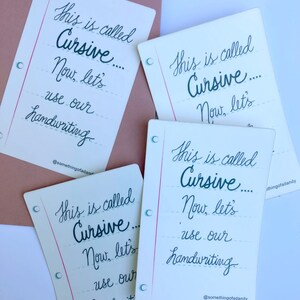 This is called
Cursive....
Now, let's
use our
handwriting
@somethingofadandy
This is called
Cursive....
Now, let's
@somethingofadandy
This is called
Cursive....
Now, let's
use our
This is called
Cursive....
Now, let's
use our
handwriting
@somethingofadandy